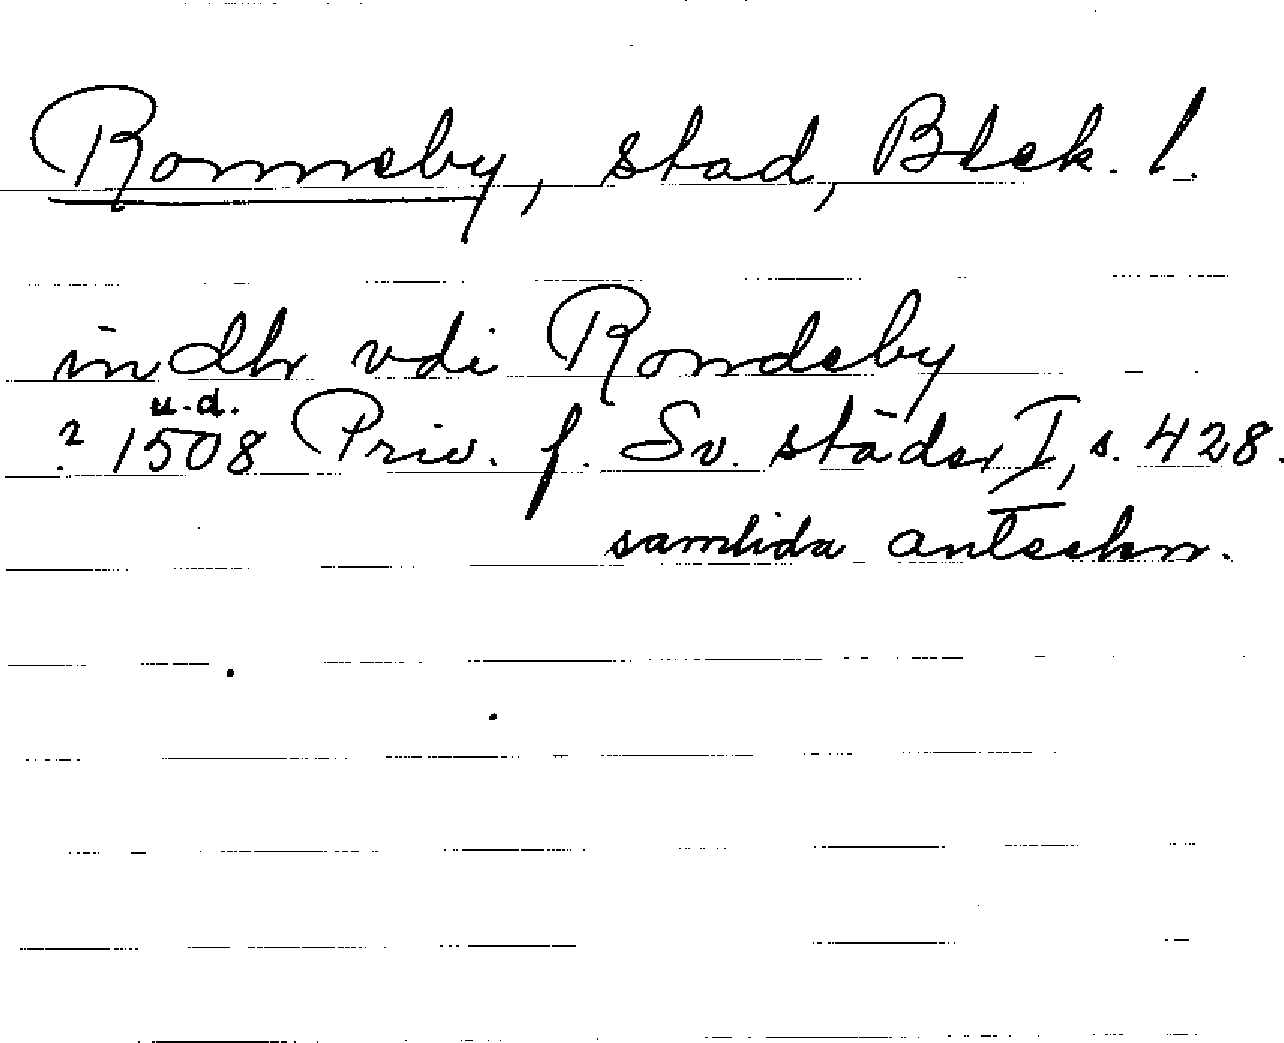 Ronneby, stad, Blek. l.
in dhr vdi Rondeby
u.d.
? 1508 Priv. f. Sv. städer I, s. 428.
samtida anteckn.